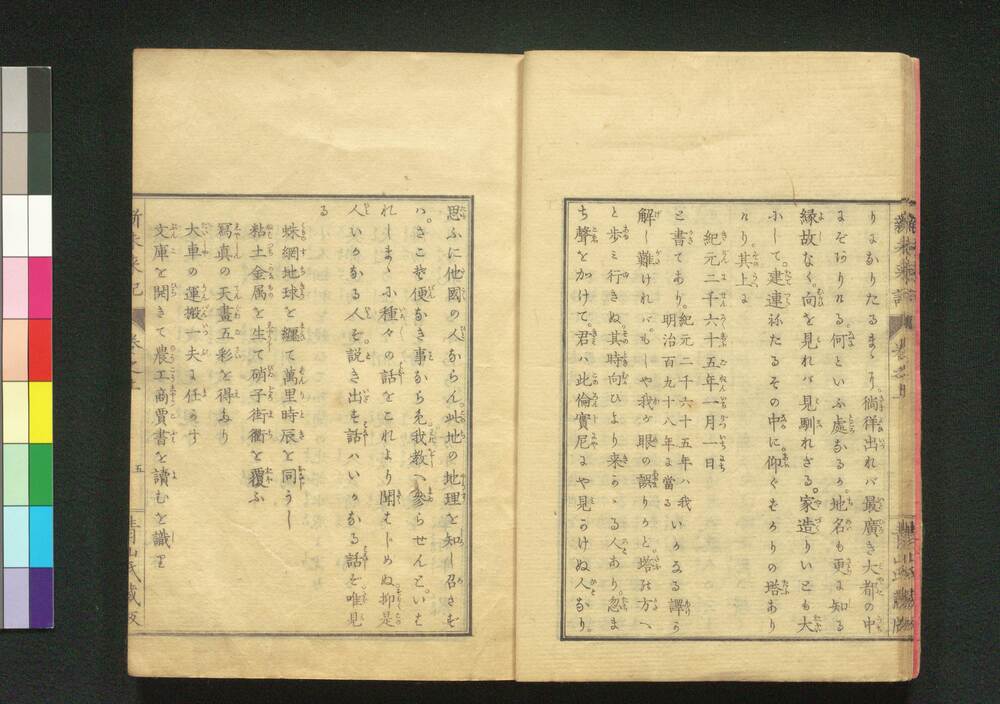 りよかりたるまゝより徜徉出れバ最廣き大都の中
にぞありける。何といふ處なるか。地名も更に知る
縁故なく。向を見れバ見馴れざる。家造りいとも大
小して。建連ねたるその中に。仰ぐばかりの塔あり
けり。其上に
紀元二千六十五年一月一日
と書てあり。紀元二千六十五年ハ我
明治百九十八年に當る
いかなる譯か
解し難けれバ。もしや我が眼の誤りかと。塔の方へ
と歩ミ行きぬ。其時向ひより来かゝる人あり。忽ま
ち聲をかけて。君ハ此倫實尼にや見かけぬ人なり。
新未来記
青山氏蔵版
思ふに他國の人ならん。此地の地理を知し召さず
ハ。さこそ便なき事ならめ。我教へ参らせんと。いは
れしまゝに種々の話をこれより聞はじめぬ。抑是
人いかなる人ぞ説き出す話ハいかなる話ぞ唯見
る
蛛網地球を纏て萬里時辰を同うし
粘土金属を生て硝子街衢を覆ふ
寫真の天畫五彩を得たり
大車の運搬一夫に任かす
文庫を開きて農工商賈書を讀むを識り
新未来記
五
青山氏蔵版